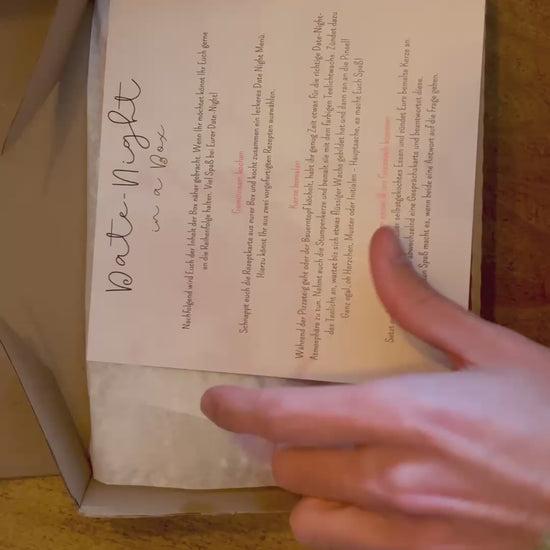 Date-Night
in a Box
Nachfolgend wird Euch der Inhalt der Box näher gebracht. Wenn Ihr möchtet könnt Ihr Euch gerne
an die Reihenfolge halten. Viel Spaß bei Eurer Date-Night!
Gemeinsam kochen
Schnappt euch die Rezeptkarte aus eurer Box und kocht zusammen ein leckeres Date Night Menü.
Hierzu könnt Ihr aus zwei vorgefertigten Rezepten auswählen.
Kerze bemalen
Während der Pizzateig geht oder der Bauerntopf köchelt, habt ihr genug Zeit etwas für die richtige Date-Night-
Atmosphäre zu tun. Nehmt euch die Stumpenkerze und bemalt sie mit dem farbigen Teelichtwachs. Zündet dazu
das Teelicht an, wartet bis sich etwas flüssiger Wachs gebildet hat und dann ran an die Pinsel!
Ganz egal, ob Herzchen, Muster oder Initialen - Hauptsache, es macht Euch Spaß!
ins Gespräch kommen
Setzt selbstgekochtes Essen und zündet Eure bemalte Kerze an.
abwechselnd eine Gesprächskarte und beantwortet diese.
Spaß macht es, wenn beide eine Antwort auf die Frage geben.